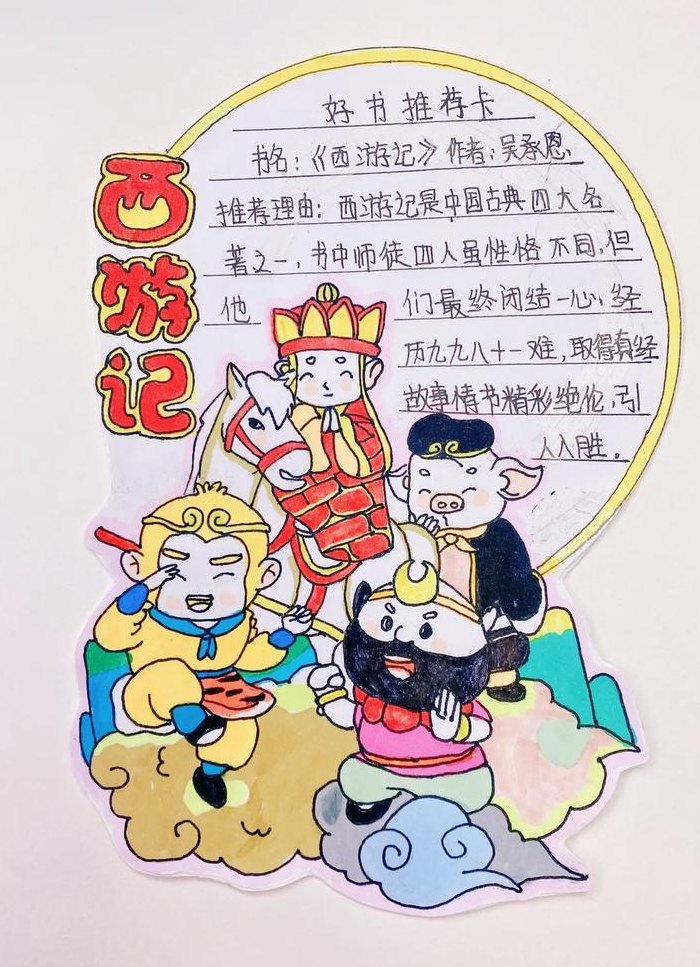 西游记
好书推荐卡
书名:《西游记》作者:吴承恩
推荐理由:西游记是中国古典四大名
著之一,书中师徒四人虽性格不同,但
他们最终闭结一心,经
历九九八十一难,取得真经
故事情节精彩绝伦,引
人入胜。